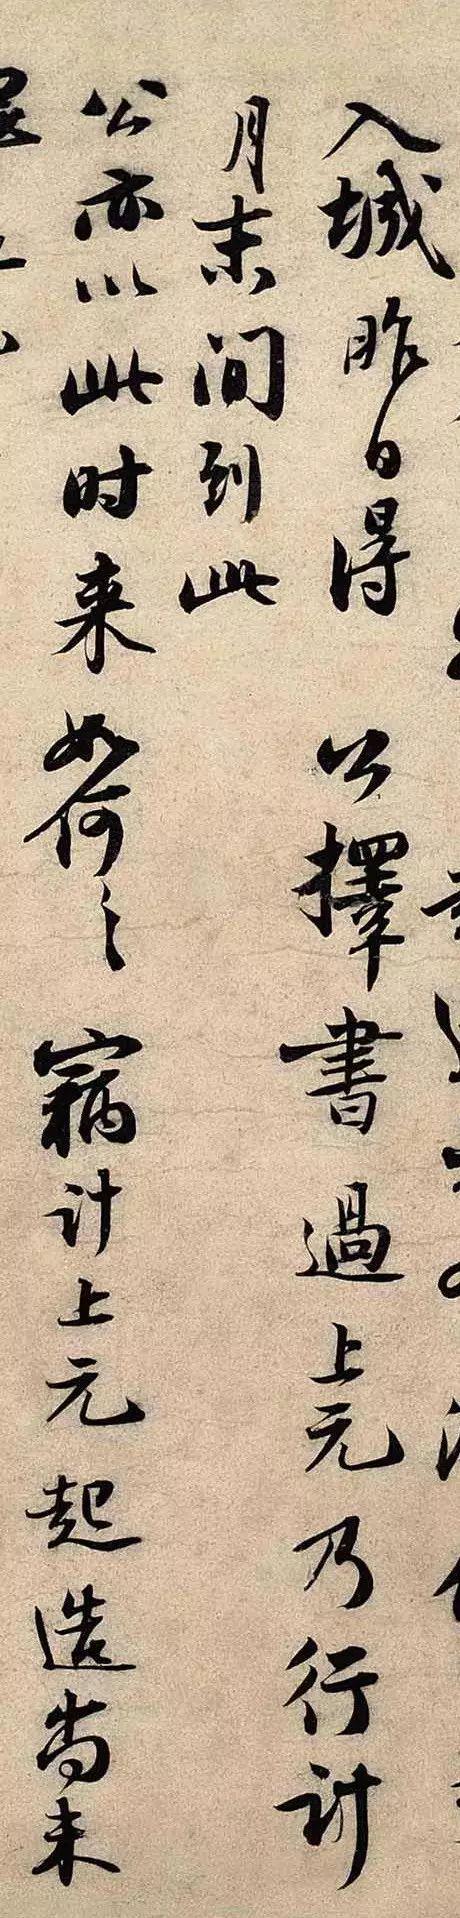 入城昨日得 公擇書過上元乃行計
月末間到此
公亦以此時来如何〻竊計上元起造尚未